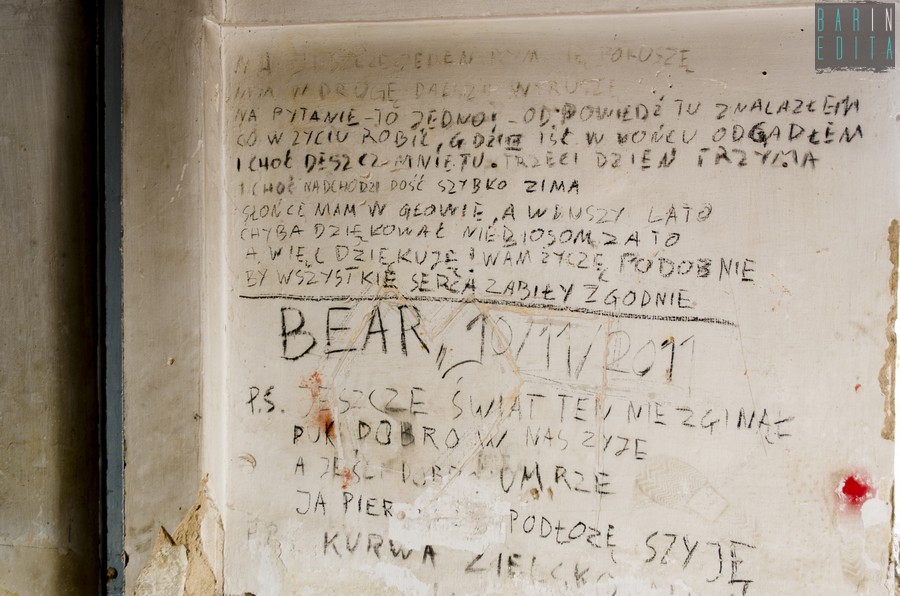 BARIN
EDITA
NA JESZCZE JEDEN RYM SIĘ POKUSZĘ
NIM W DROGĘ DALSZĄ WYRUSZĘ
NA PYTANIE-TO JEDNO!-ODPOWIEDŹ TU ZNALAZŁEM
CO W ŻYCIU ROBIĆ, GDZIE IŚĆ W KOŃCU ODGADŁEM
I CHOĆ DESZCZ MNIE TU TRZECI DZIEŃ TRZYMA
I CHOĆ NADCHODZI DOŚĆ SZYBKO ZIMA
SŁOŃCE MAM W GŁOWIE, A W DUSZY LATO
CHYBA DZIĘKOWAĆ NIEBIOSOM ZA TO
A WIĘC DZIĘKUJĘ I WAM ŻYCZĘ PODOBNIE
BY WSZYSTKIE SERCA ZABIŁY ZGODNIE
BEAR, 10/11/2011
P.S. JESZCZE ŚWIAT TEN NIE ZGINĄŁ
PÓKI DOBRO W NAS ŻYJE
A JEŚLI DOBRO UMRZE
JA PIER PODŁOŻĘ SZYJĘ
KURWA